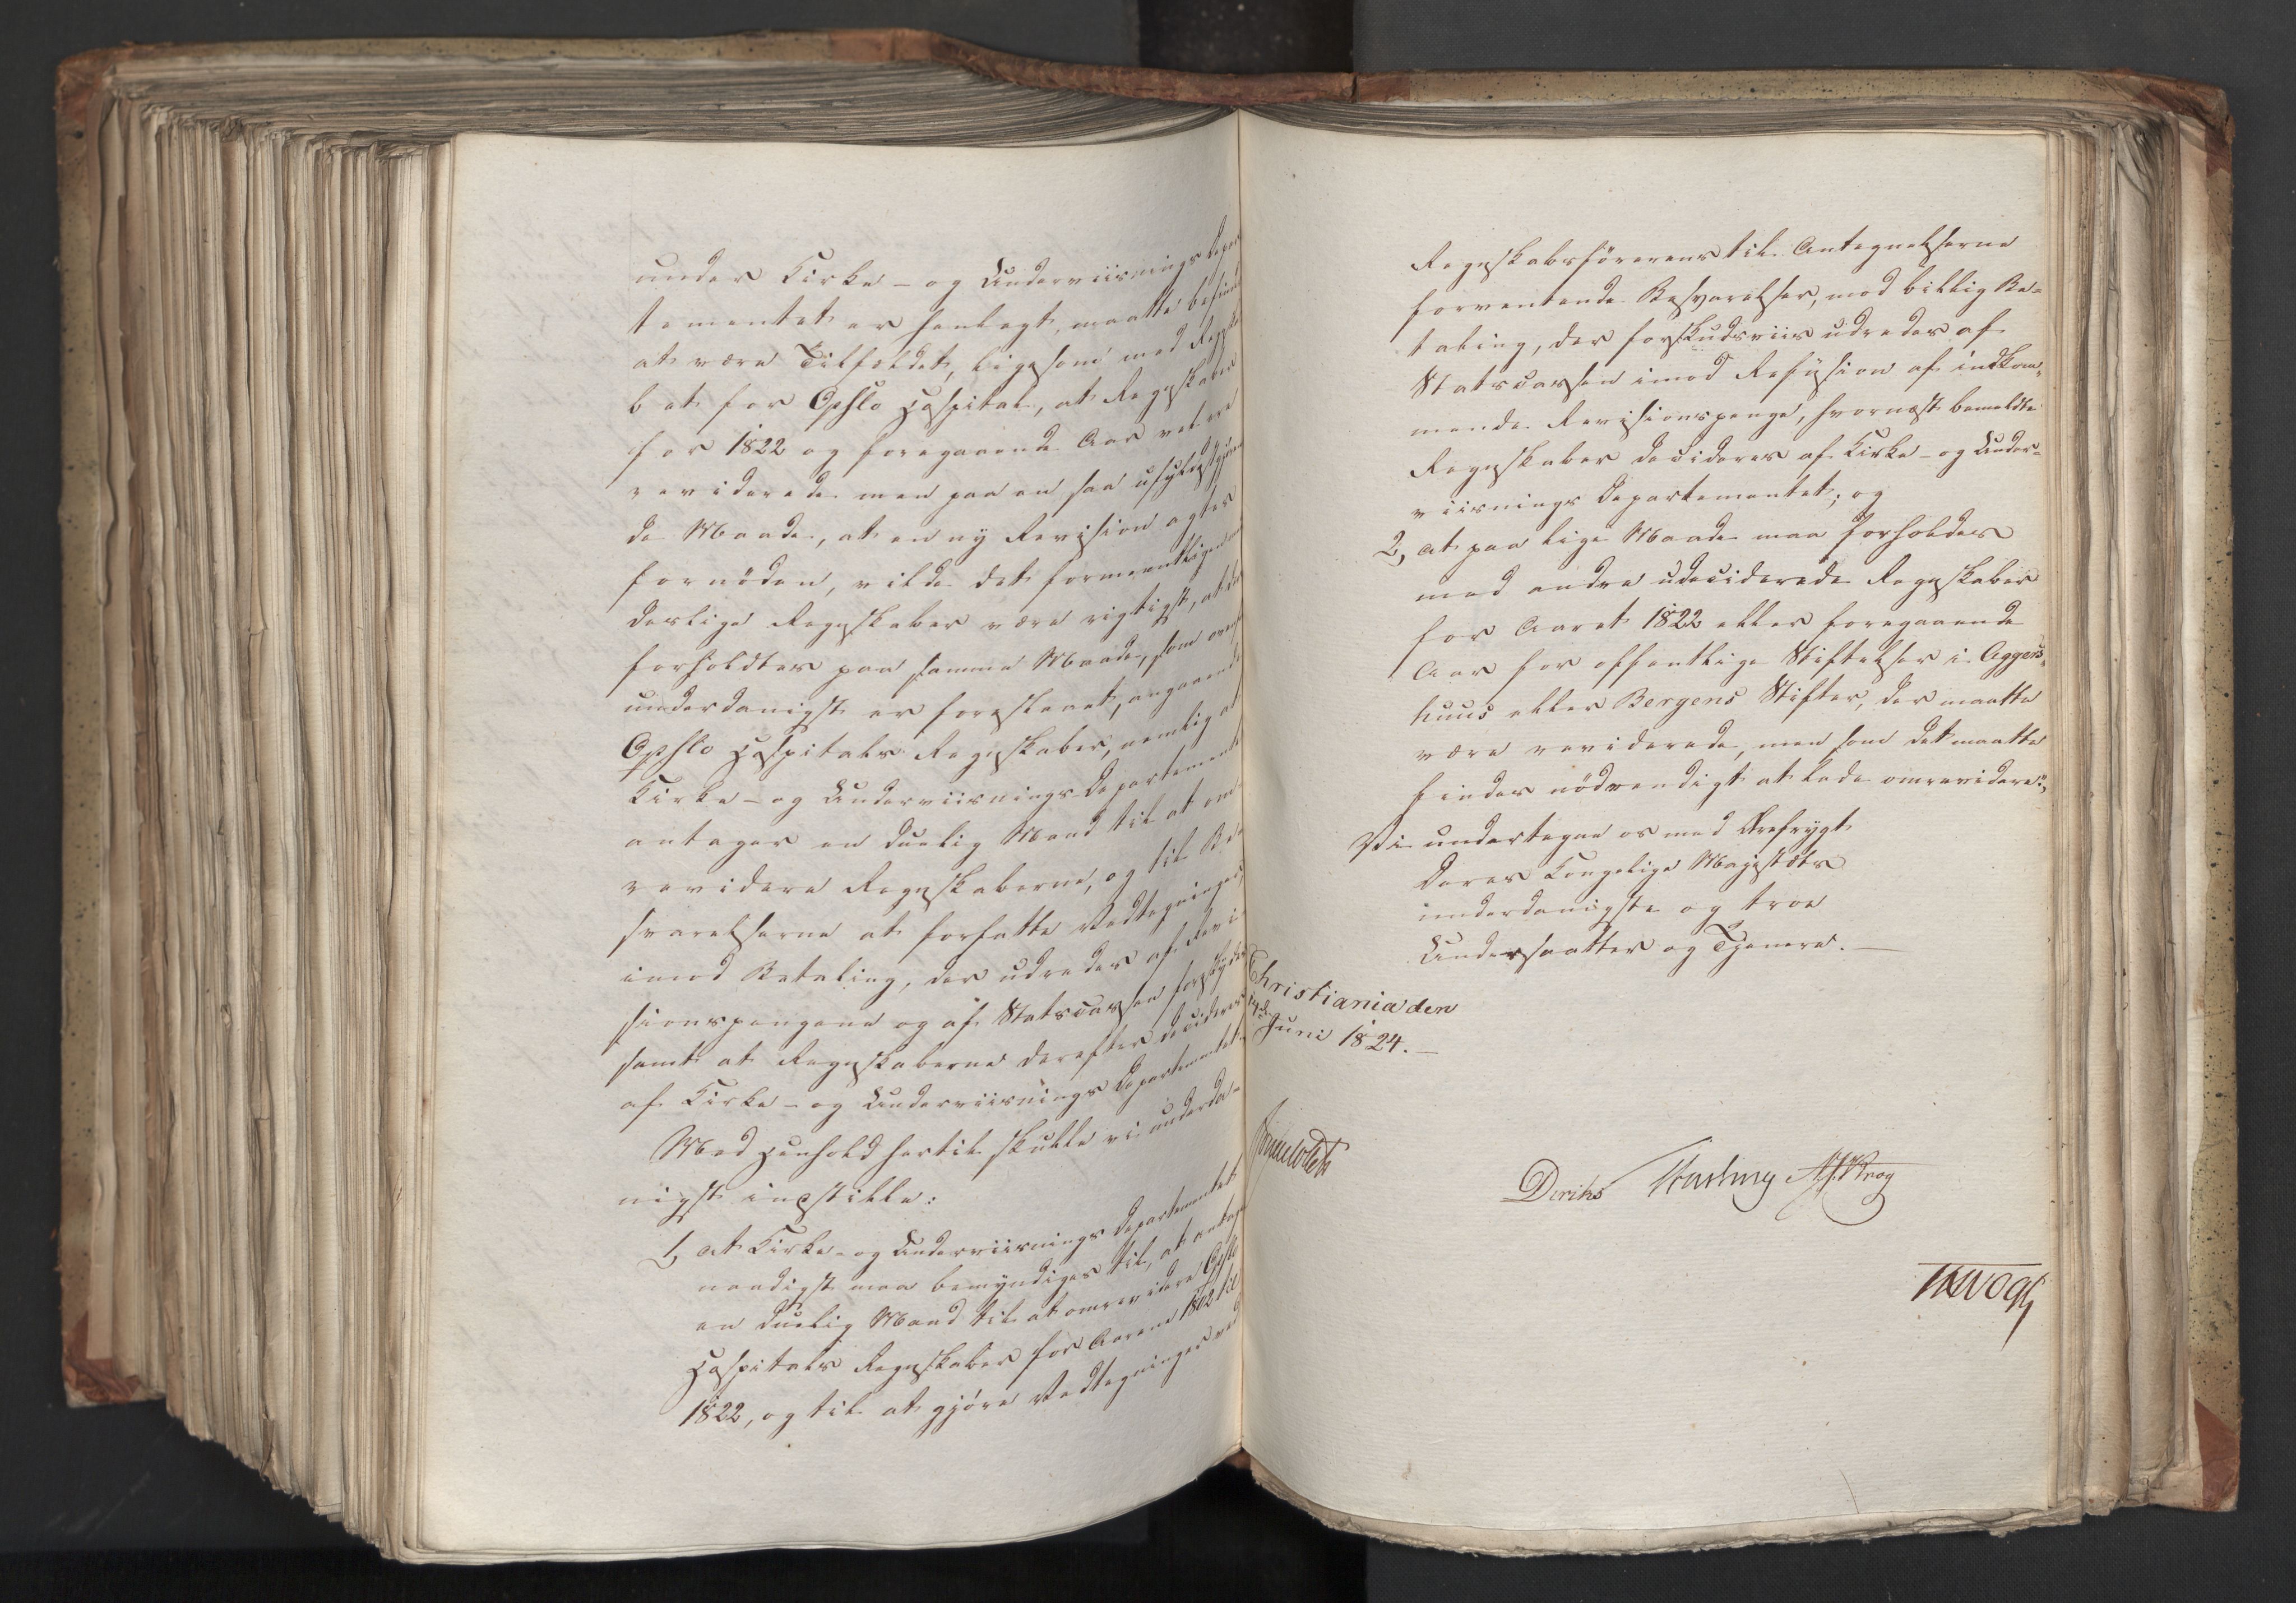 under Kirke- og Underviisnings Depar
tementet er henlagt, maatte befindes
at være Tilfældet, ligesom med Regnska
bet for Opslo Hospital, at Regnskaber
for 1822 og foregaaende Aar vel ere
reviderede men paa en saa ufyldestgjøren
de Maade, at en ny Revision agtes
fornöden, vilde det formeentligen med
deslige Regnskaber være rigtigst, at der
forholdtes paa samme Maade, som oven
underdanigst er foreslaaet, angaaende
Opslo Hospitals Regnskaber, nemlig at
Kirke- og Underviisnings Departementet
antager en duelig Mand til at om-
revidere Regnskaberne, og til Be-
svarelserne at forfatte Vedtegninger,
imod Betaling, der udredes af Revi-
sionspengene og af Statscassen forskydes,
samt at Regnskaberne derefter decideres
af Kirke- og Underviisnings Departementet.
Med Henhold hertil skulle vi underda-
nigst indstille:
1, at Kirke- og Underviisnings Departementet
naadigst maa bemyndiges til, at antage
en duelig Mand til at omrevidere Opslo
Hospitals Regnskaber for Aarene 1802 til
1822, og til at gjöre Vedtegninger ved
Regnskabsförerens til Antegnelserne
forventende Besvarelser, mod billig Be-
taling, der forskudsviis udredes af
Statscassen imod Refusion af indkom-
mende Revisionspenge, hvornæst bemeldte
Regnskaber decideres af Kirke- og Under-
viisnings Departementet; og
2, at paa lige Maade maa forholdes
med andre udeciderede Regnskaber
for Aaret 1822 eller foregaaende
Aar for offentlige Stiftelser i Aggers-
huus eller Bergens Stifter, der maatte
være reviderede, men som det maatte
findes nödvendigt at lade omrevidere.
Vi undertegne os med Ærefrygt
Deres Kongelige Majestæts
underdanigste og troe
Undersaatter og Tjenere.
Christiania den
Juni 1824.
Diriks
Krog